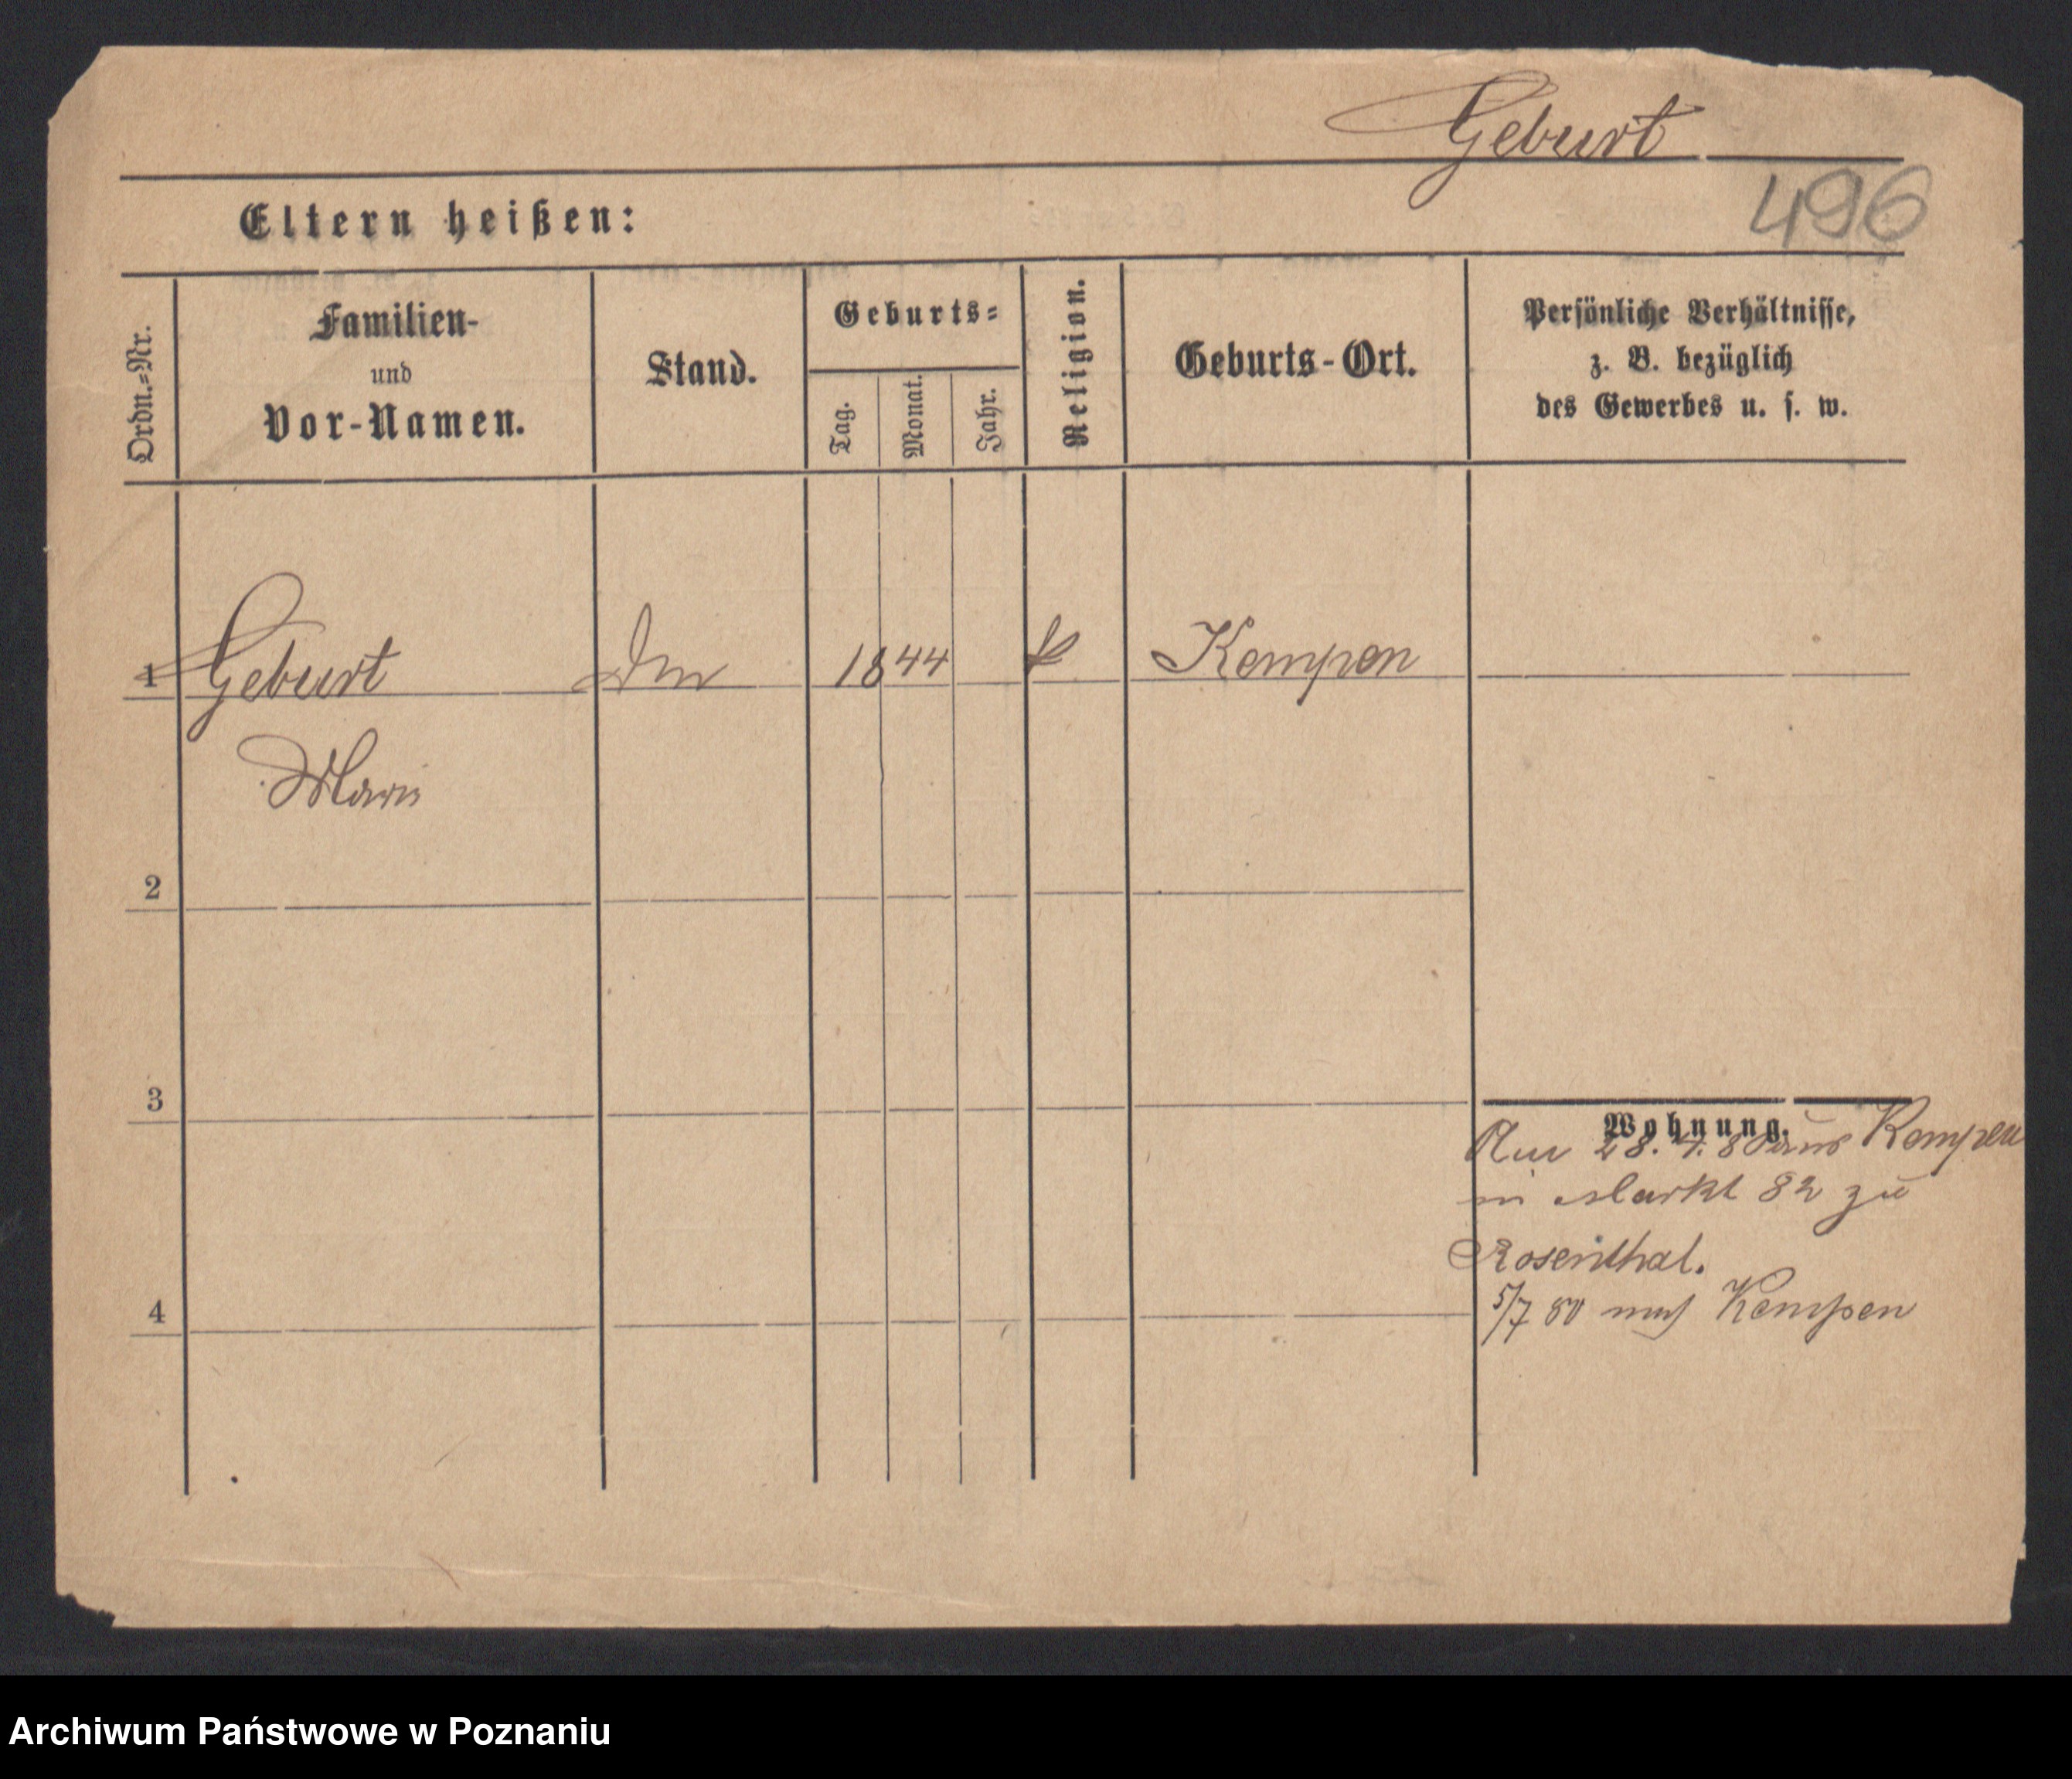 Geburt
496
Eltern heißen:
Ordn.=Nr.
Familien-
und
Vor-Namen.
Stand.
Geburts=
Tag.
Monat.
Jahr.
Religion.
Geburts-Ort.
Persönliche Verhältnisse,
z. B. bezüglich
des Gewerbes u. s. w.
1 Geburt 1844 k Kempen
Marie
2
3
Wohnung.
28. 4. 80 aus Kempen
in Markt 82 zu
Rosenthal.
4
5/7 80 nach Kempen
Archiwum Państwowe w Poznaniu